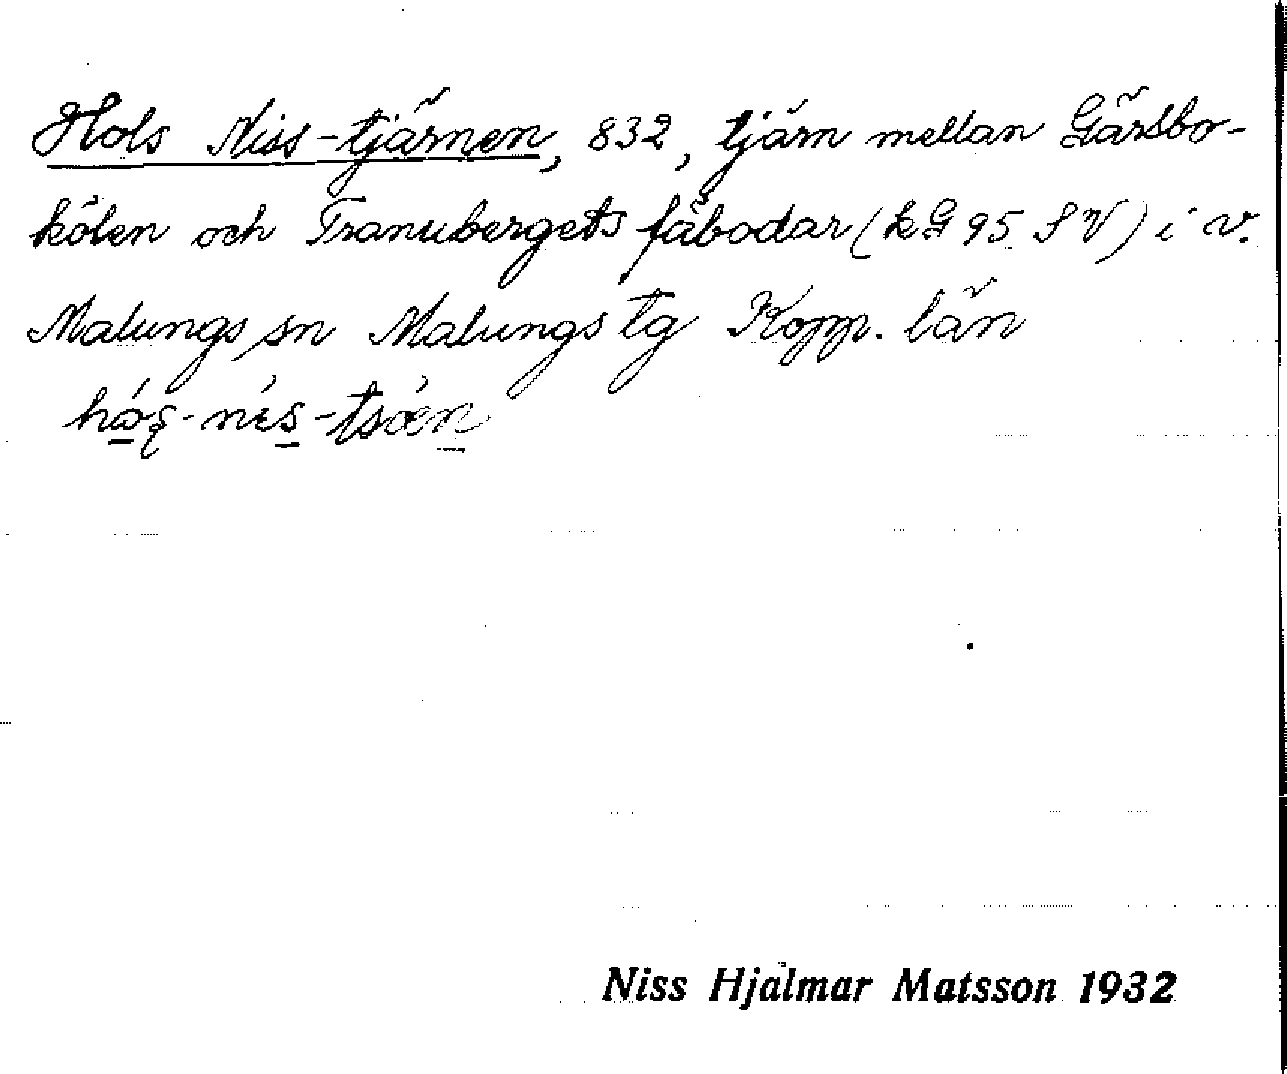 Hols Niss-tjärnen, 832, tjärn mellan Gärsbo-
kölen och Tranubergets fäbodar (kG 95 SV) i v.
Malungs sn Malungs tg Kopp. län
Niss Hjalmar Matsson 1932